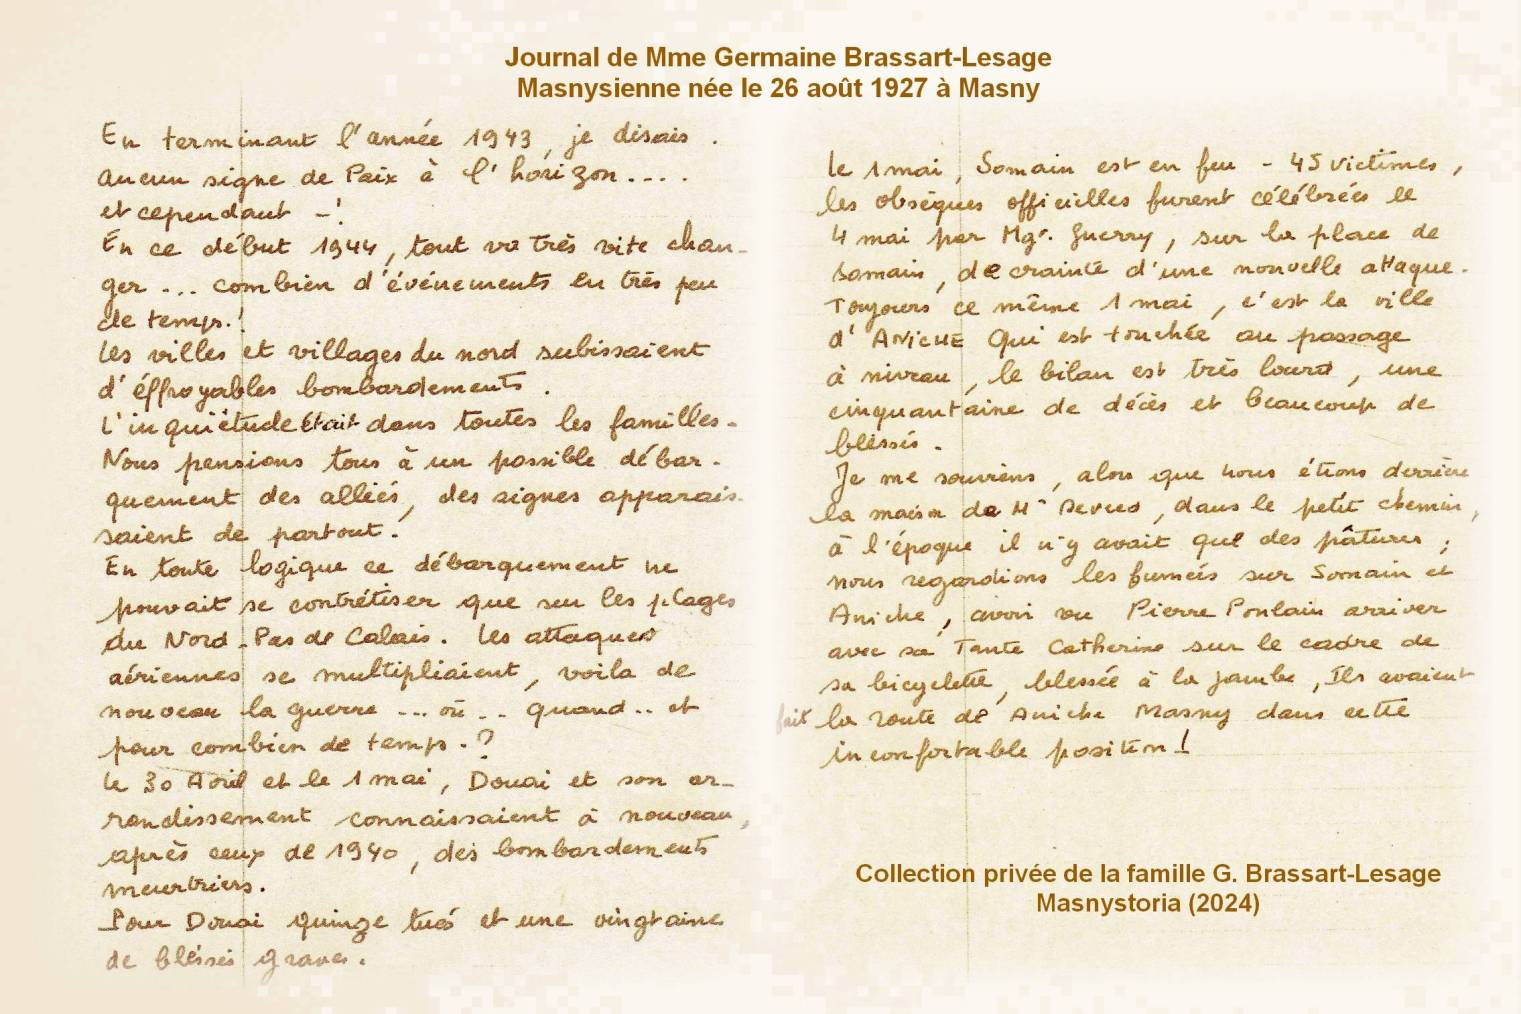 Journal de Mme Germaine Brassart-Lesage
Masnysienne née le 26 août 1927 à Masny
En terminant l'année 1943, je disais.
aucun signe de Paix à l'horizon....
et cependant -!
En ce début 1944, tout va très vite chan-
ger ... combien d'événements en très peu
de temps.!
les villes et villages du nord subissaient
d'éffroyables bombardements.
L'inquiétude était dans toutes les familles.
Nous pensions tous à un possible débar-
quement des alliés, des signes apparais-
saient de partout.
En toute logique ce débarquement ne
pouvait se contrétiser que sur les plages
du Nord-Pas de Calais. les attaques
aériennes se multipliaient, voila de
nouveau la guerre ... où .. quand .. et
pour combien de temps.?
le 30 Avril et le 1 mai, Douai et son ar-
rondissement connaissaient à nouveau,
après ceux de 1940, des bombardements
meurtriers.
Pour Douai quinze tués et une vingtaine
de bléssés graves.
le 1 mai, Somain est en feu - 45 victimes,
les obsèques officielles furent célébrées le
4 mai par Mgr. Guerry, sur la place de
Somain, de crainte d'une nouvelle attaque.
Toujours ce même 1 mai, c'est la ville
d'ANICHE Qui est touchée au passage
à niveau, le bilan est très lourd, une
cinquantaine de décès et beaucoup de
bléssés.
Je me souviens, alors que nous étions derrière
la maison de Mr, dans le petit chemin,
à l'époque il n'y avait que des pâtures;
nous regardions les fumées sur Somain et
Aniche, avoir vu Pierre Poulain arriver
avec sa Tante Catherine sur le cadre de
sa bicyclette, blessée à la jambe, Ils avaient
fait la route de Aniche Masny dans cette
inconfortable position!
Collection privée de la famille G. Brassart-Lesage
Masnystoria (2024)